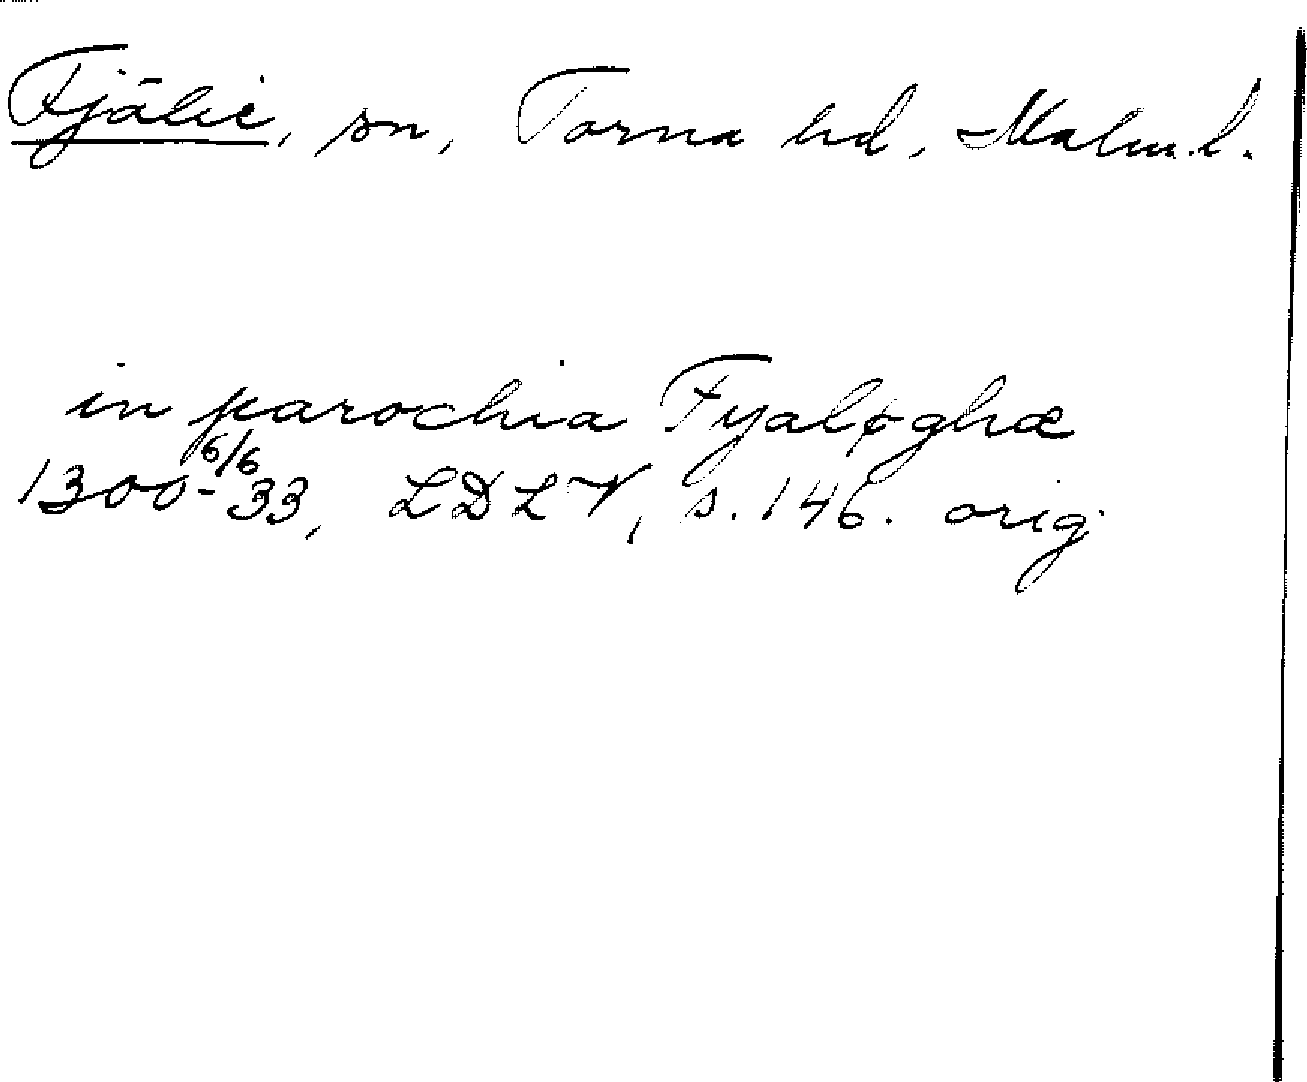 Fjälie, sn, Torna hd, Malm.l.
in parochia Fyaløghæ
6/6
1300-33, LDLV, s. 146. orig